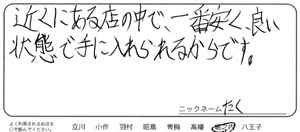 近くにある店の中で、一番安く、良い
状態で手に入れられるからです。
ニックネーム たく
よく利用されるお店を
○で囲んでください。 立川 小作 羽村 昭島 青梅 高幡 八王子